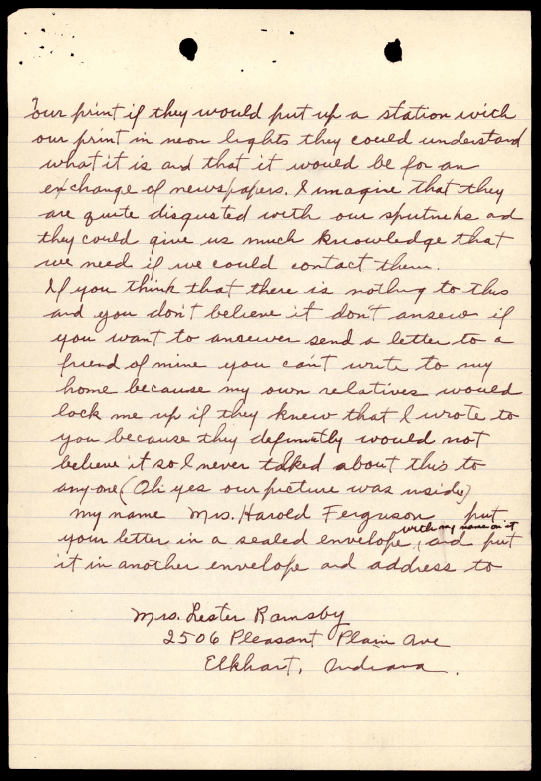 our print if they would put up a station with
our print in neon lights they could understand
what it is and that it would be for an
exchange of newspapers. I imagine that they
are quite disgusted with our sputneks ad
they could give us much knowledge that
we need if we could contact them.
If you think that there is nothing to this
and you don't believe it don't ansewr if
you want to ansewer send a letter to a
friend of mine you can't write to my
home because my own relatives would
lock me up if they knew that I wrote to
you because they definetly would not
believe it so I never talked about this to
anyone (Oh yes our picture was inside)
my name Mrs. Harold Ferguson put
your letter in a sealed envelope, with my name on it ad put
it in another envelope and address to
Mrs. Lester Ramsby
2506 Pleasant Plain Ave
Elkhart, Indiana.